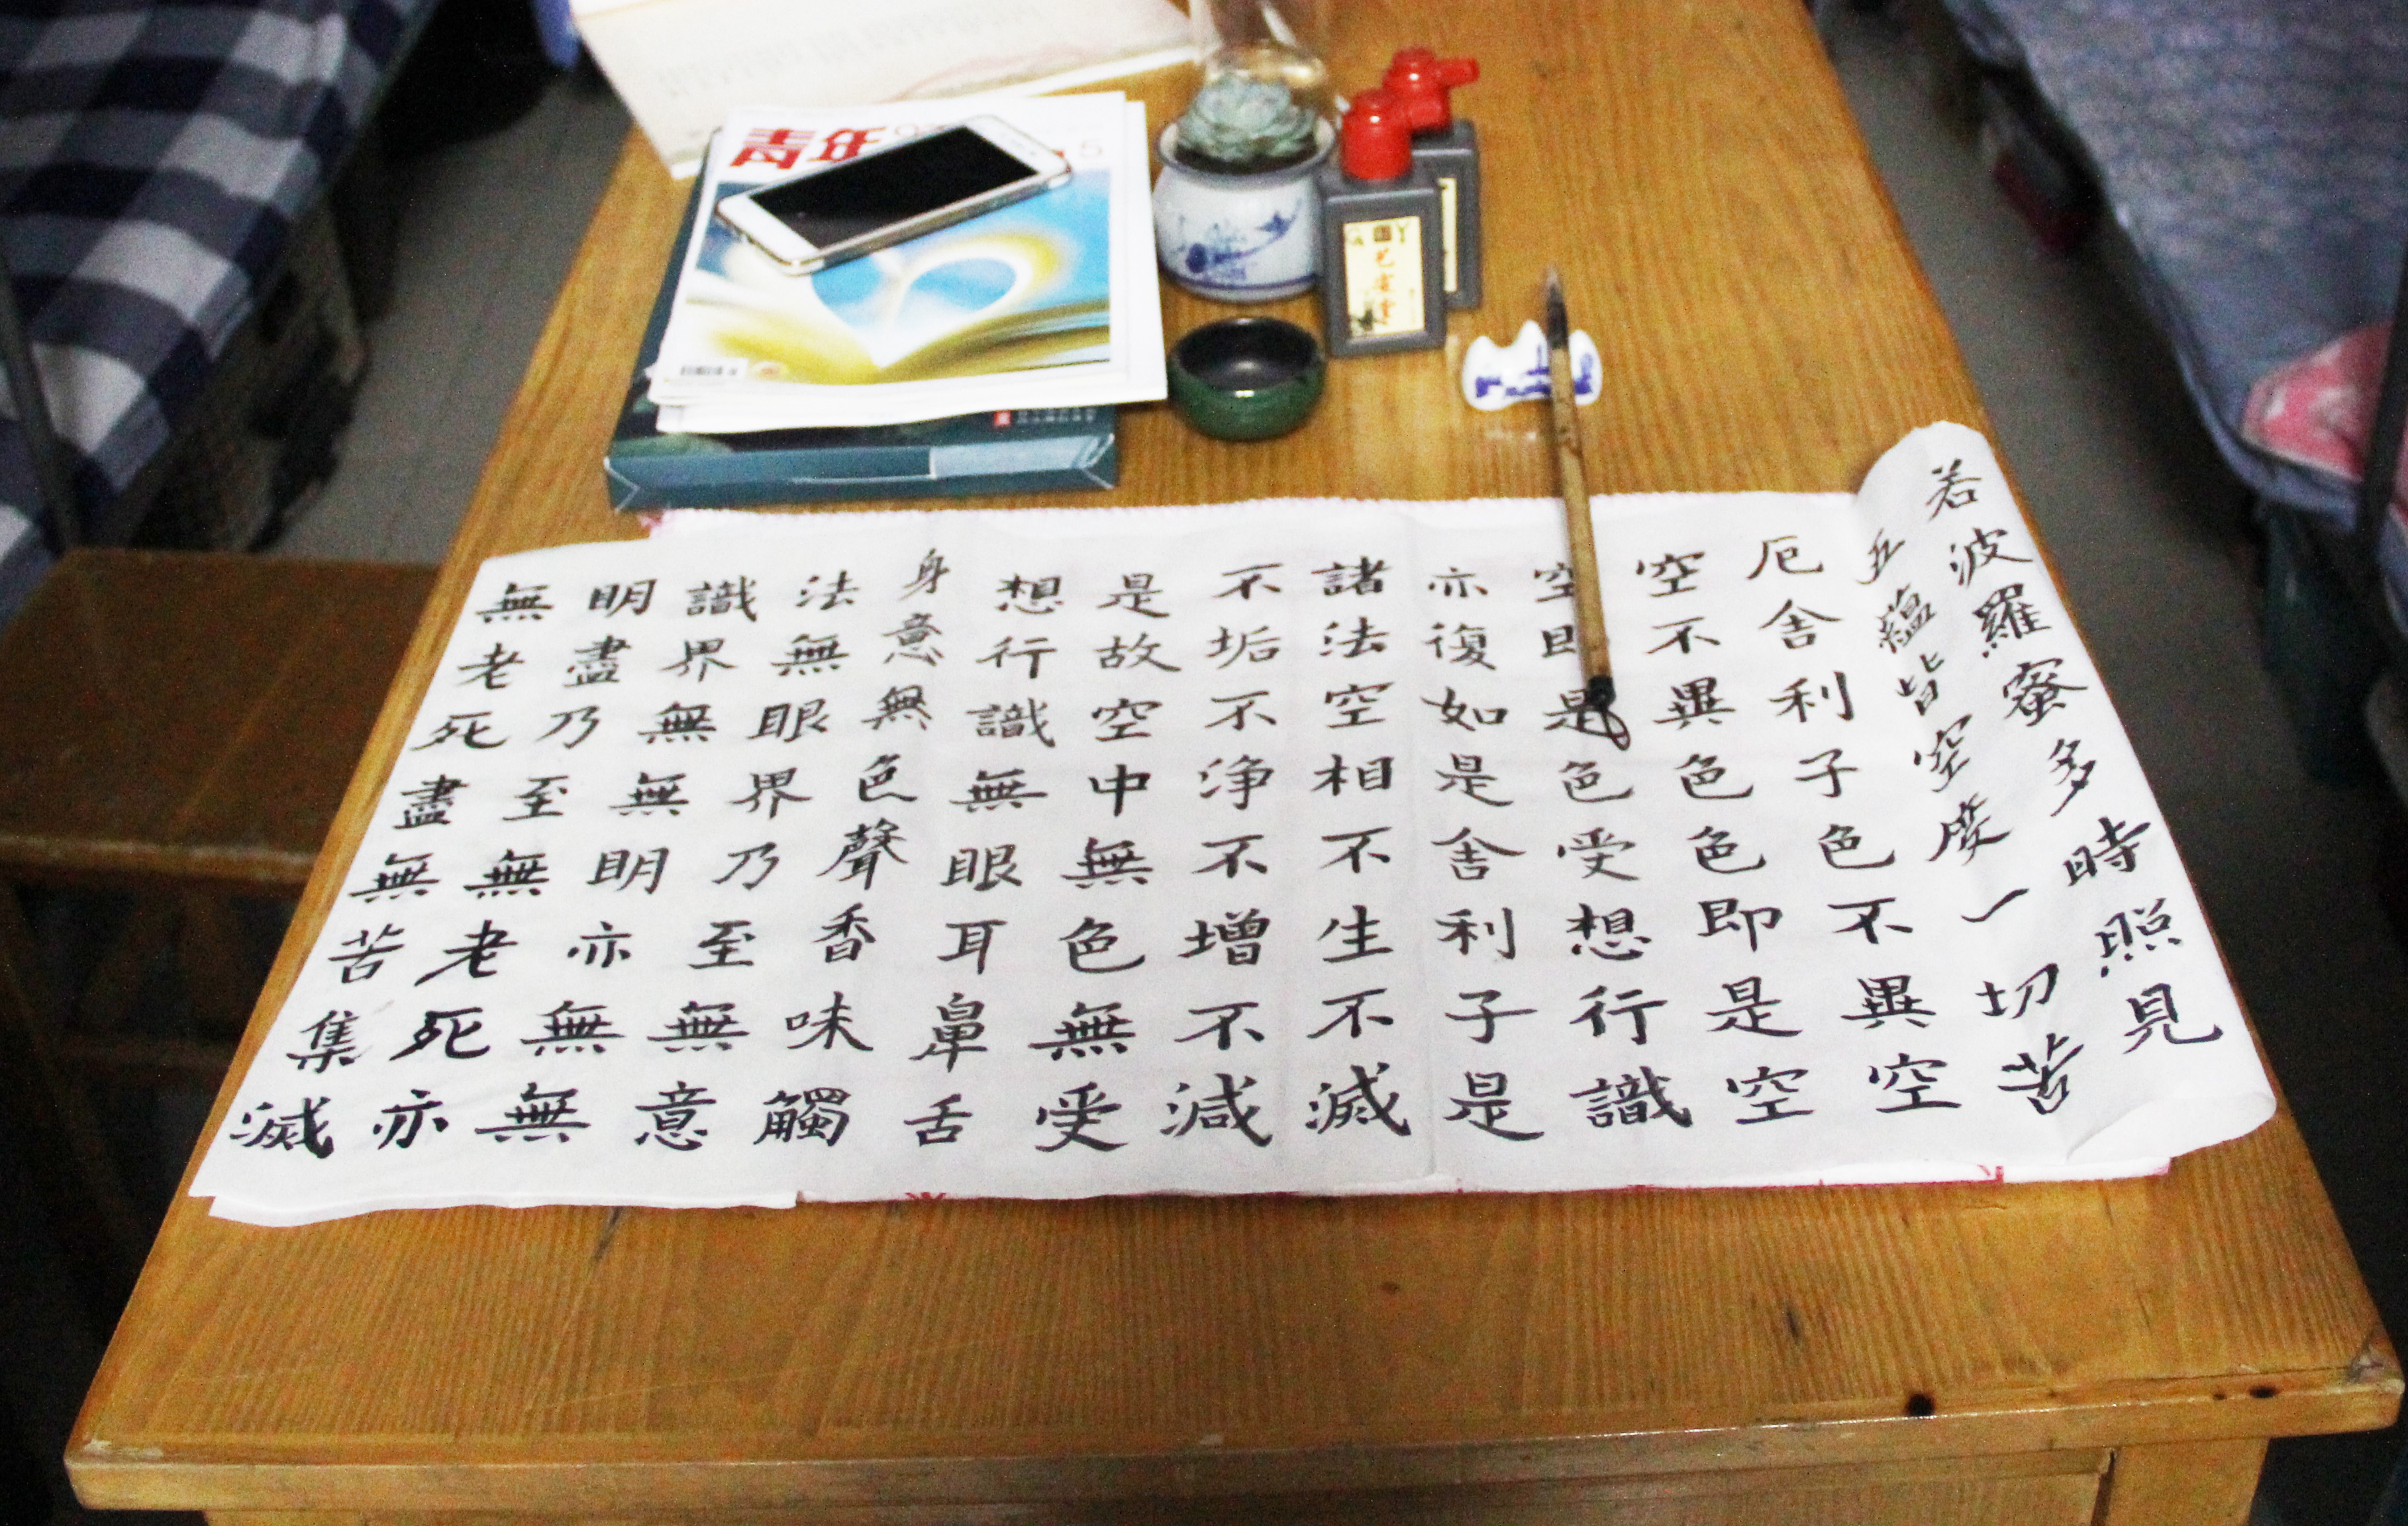 青年
5
若波羅蜜多時照見
五蘊皆空度一切苦
厄舍利子色不異空
空不異色色即是空
空即是色受想行識
亦復如是舍利子是
諸法空相不生不滅
不垢不浄不增不減
是故空中無色無受
想行識無眼耳鼻舌
身意無色聲香味觸
法無眼界乃至無意
識界無無明亦無無
明盡乃至無老死亦
無老死盡無苦集滅